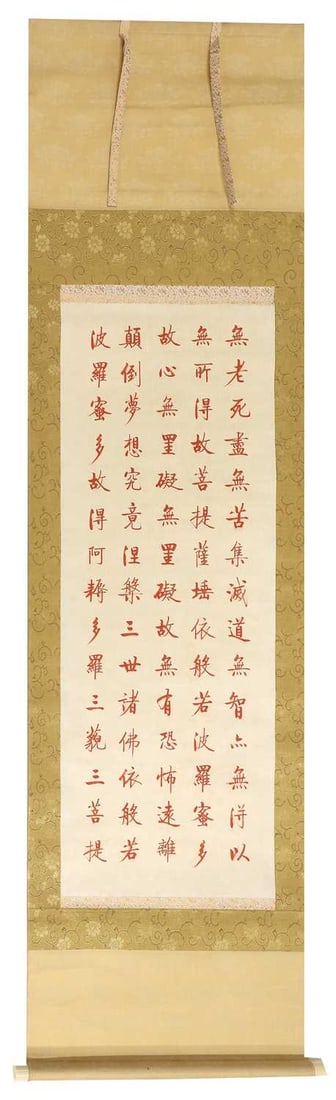 無老死盡無苦集滅道無智亦無淂以
無所得故菩提薩埵依般若波羅蜜多
故心無罣礙無罣礙故無有恐怖遠離
顛倒夢想究竟涅槃三世諸佛依般若
波羅蜜多故得阿耨多羅三藐三菩提